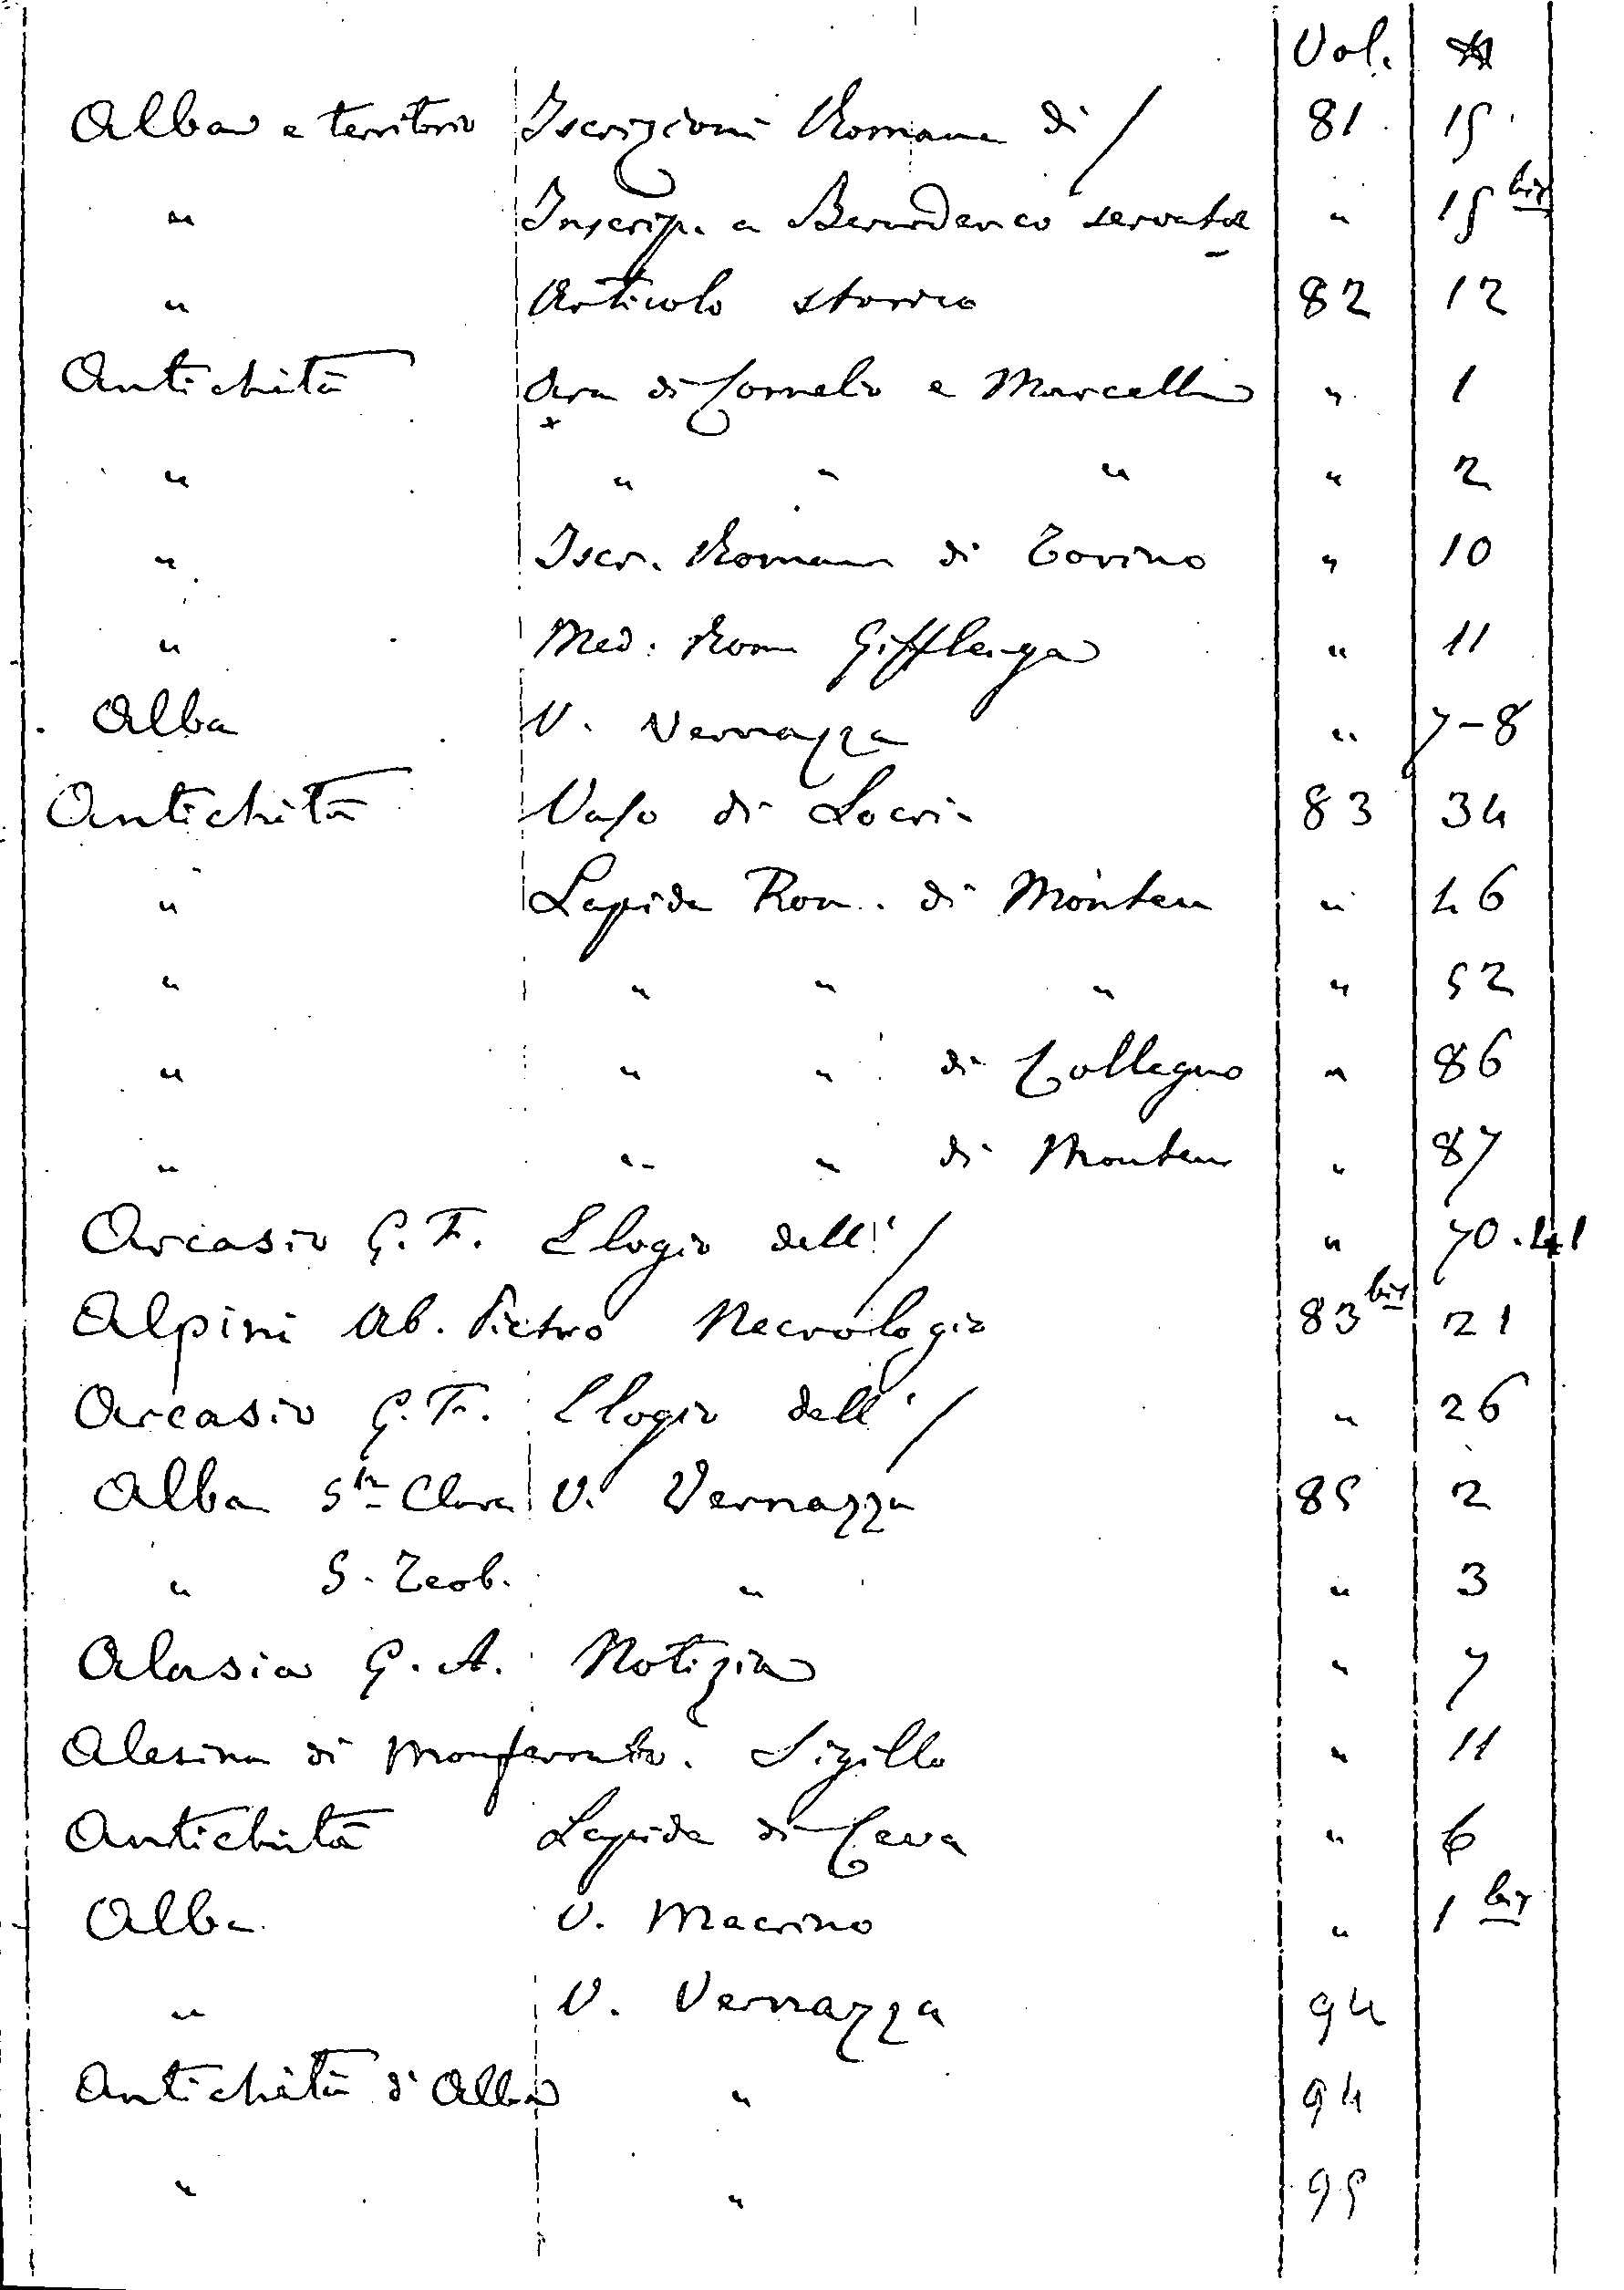 Vol. №
Alba e territorio Iscrizioni Romane di / 81 15
" Inscrip. a Berardenco servatae " 15 bis
" Articolo storico 82 12
Antichità Ara di Cornelio e Marcella " 1
" " " " " 2
" Iscr. Romane di Torino " 10
" Med. Rom Gifflenga " 11
Alba V. Vernazza " 7-8
Antichità Vaso di Locri 83 34
" Lapide Rom. di Monteu " 46
" " " " " 52
" " " di Collegno " 86
" " " di Monteu " 87
Arcasio G. F. Elogio dell' / " 70.41
Alpini Ab. Pietro Necrologio 83 bis 21
Arcasio G. F. Elogio dell' / " 26
Alba Sta Clara V. Vernazza 85 2
" S. Teob. " " 3
Alasia G. A. Notizia " 7
Alesina di Monferrato. Sigillo " 11
Antichità Lapide di Ceva " 6
Alba V. Macrino " 1 bis
" V. Vernazza 94
Antichità d'Alba " 94
" " 95